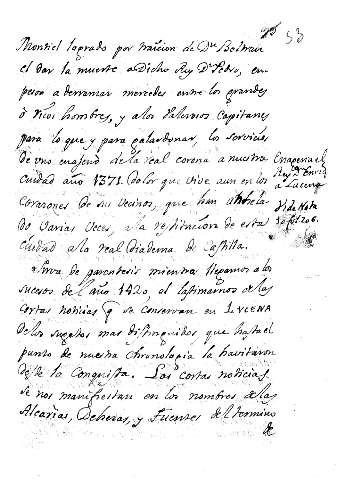 53
Montiel logrado por traicion de Dn Beltran
el dar la muerte a Dicho Rey Dn Pedro, em-
peso a derramar mercedes entre los grandes
ô ricos hombres, y a los Valerosos Capitanes
para lo que y para galardonar, los servicios
de uno enajenó de la real corona a nuestra
Ciudad año 1371. Dolor que vive aun en los
Corazones de sus vecinos, que han anhela
do varias veces, a la restitucion de esta
Ciudad a la real Diadema de Castilla.
Enagena el
Rey Dn Enriq
a Lucena
Vide Nota
10 fol 206.
Sirva de parentesis mientras llegamos a los
sucesos del año 1420, el lastimarnos de las
cortas noticias q se conservan en LUCENA
de los sugetos mas distinguidos que hasta el
punto de nuestra Chronologia la havitaron
desde la Conquista. Las cortas noticias
se nos manifiestan en los nombres de las
Alcarias, Dehesas, y Fuentes del termino
de